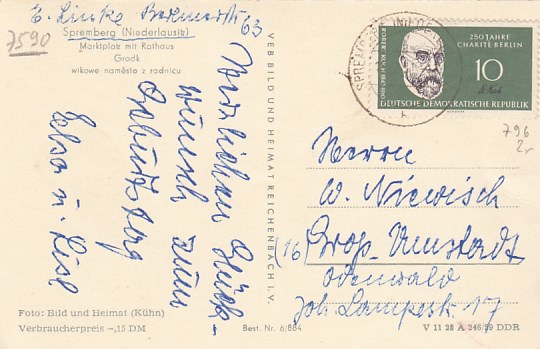 E. Linke Badmerstr 63
7590
Spremberg (Niederlausitz)
Marktplatz mit Rathaus
Grodk
wikowe naměsto z radnicu
Herzlichen Glück-
wunsch zum
Geburtstag
Elsa u. Lisl
Foto: Bild und Heimat (Kühn)
Verbraucherpreis -,15 DM
VEB BILD UND HEIMAT REICHENBACH I. V.
Best. Nr. 6/884
SPREMBERG (NIEDE
250 JAHRE
CHARITÉ BERLIN
ROBERT KOCH 1843-1910
10
DEUTSCHE DEMOKRATISCHE REPUBLIK
796
Herrn
W. Niewisch
(16) Groß-Umstadt
Odenwald
Joh. Lampestr. 17
V 11 28 A 246/59 DDR